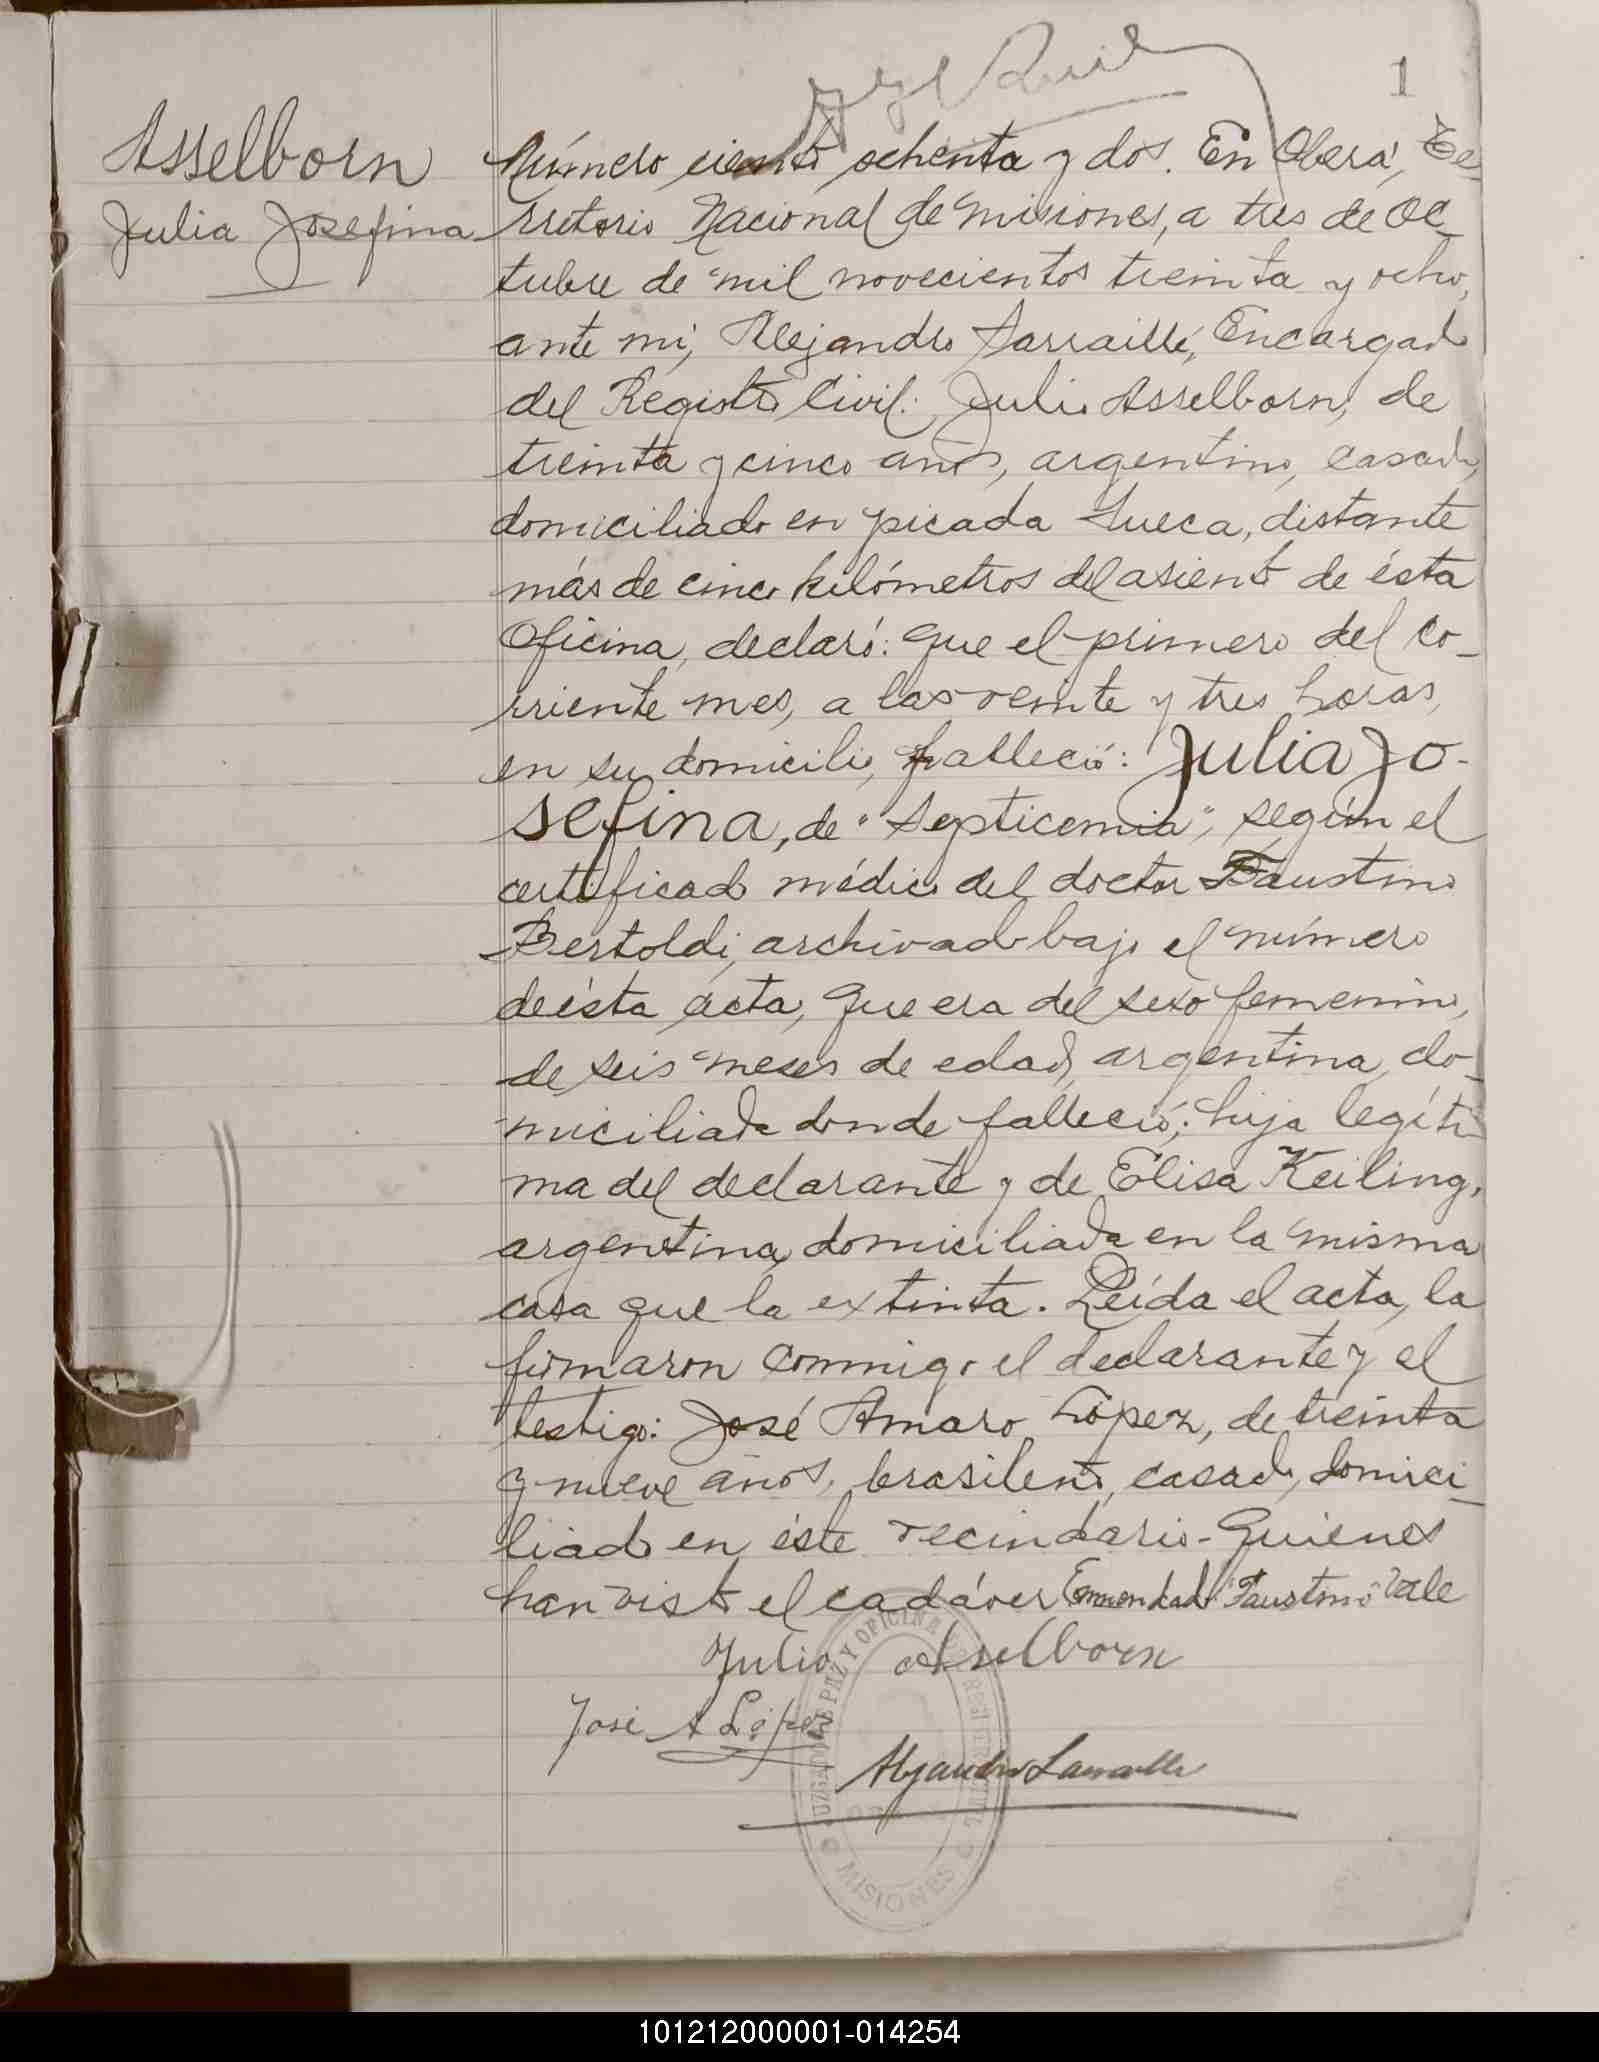 1
Asselborn
Julia Josefina
Número ciento ochenta y dos. En Oberá, Te-
rritorio Nacional de Misiones, a tres de Oc-
tubre de mil novecientos treinta y ocho,
ante mí, Alejandro Larraillé, Encargado
del Registro Civil: Julio Asselborn, de
treinta y cinco años, argentino, casado,
domiciliado en picada Sueca, distante
más de cinco kilómetros del asiento de ésta
Oficina, declaró: Que el primero del co-
rriente mes, a las veinte y tres horas,
en su domicilio, falleció: Julia Jo-
sefina, de "Septicemia", según el
certificado médico del doctor Faustino
Bertoldi, archivado bajo el número
de ésta acta, que era del sexo femenino,
de seis meses de edad, argentina, do-
miciliada donde falleció; hija legíti-
ma del declarante y de Elisa Keiling,
argentina, domiciliada en la misma
casa que la extinta. Leída el acta, la
firmaron conmigo el declarante y el
testigo: José Amaro López, de treinta
y nueve años, brasileño, casado, domici-
liado en éste vecindario. Quienes
han visto el cadáver Enmendado "Faustino" Vale
Julio Asselborn
José A López
Alejandro Larraillé
JUZGADO DE PAZ Y OFICINA DEL REGISTRO CIVIL
MISIONES
101212000001-014254